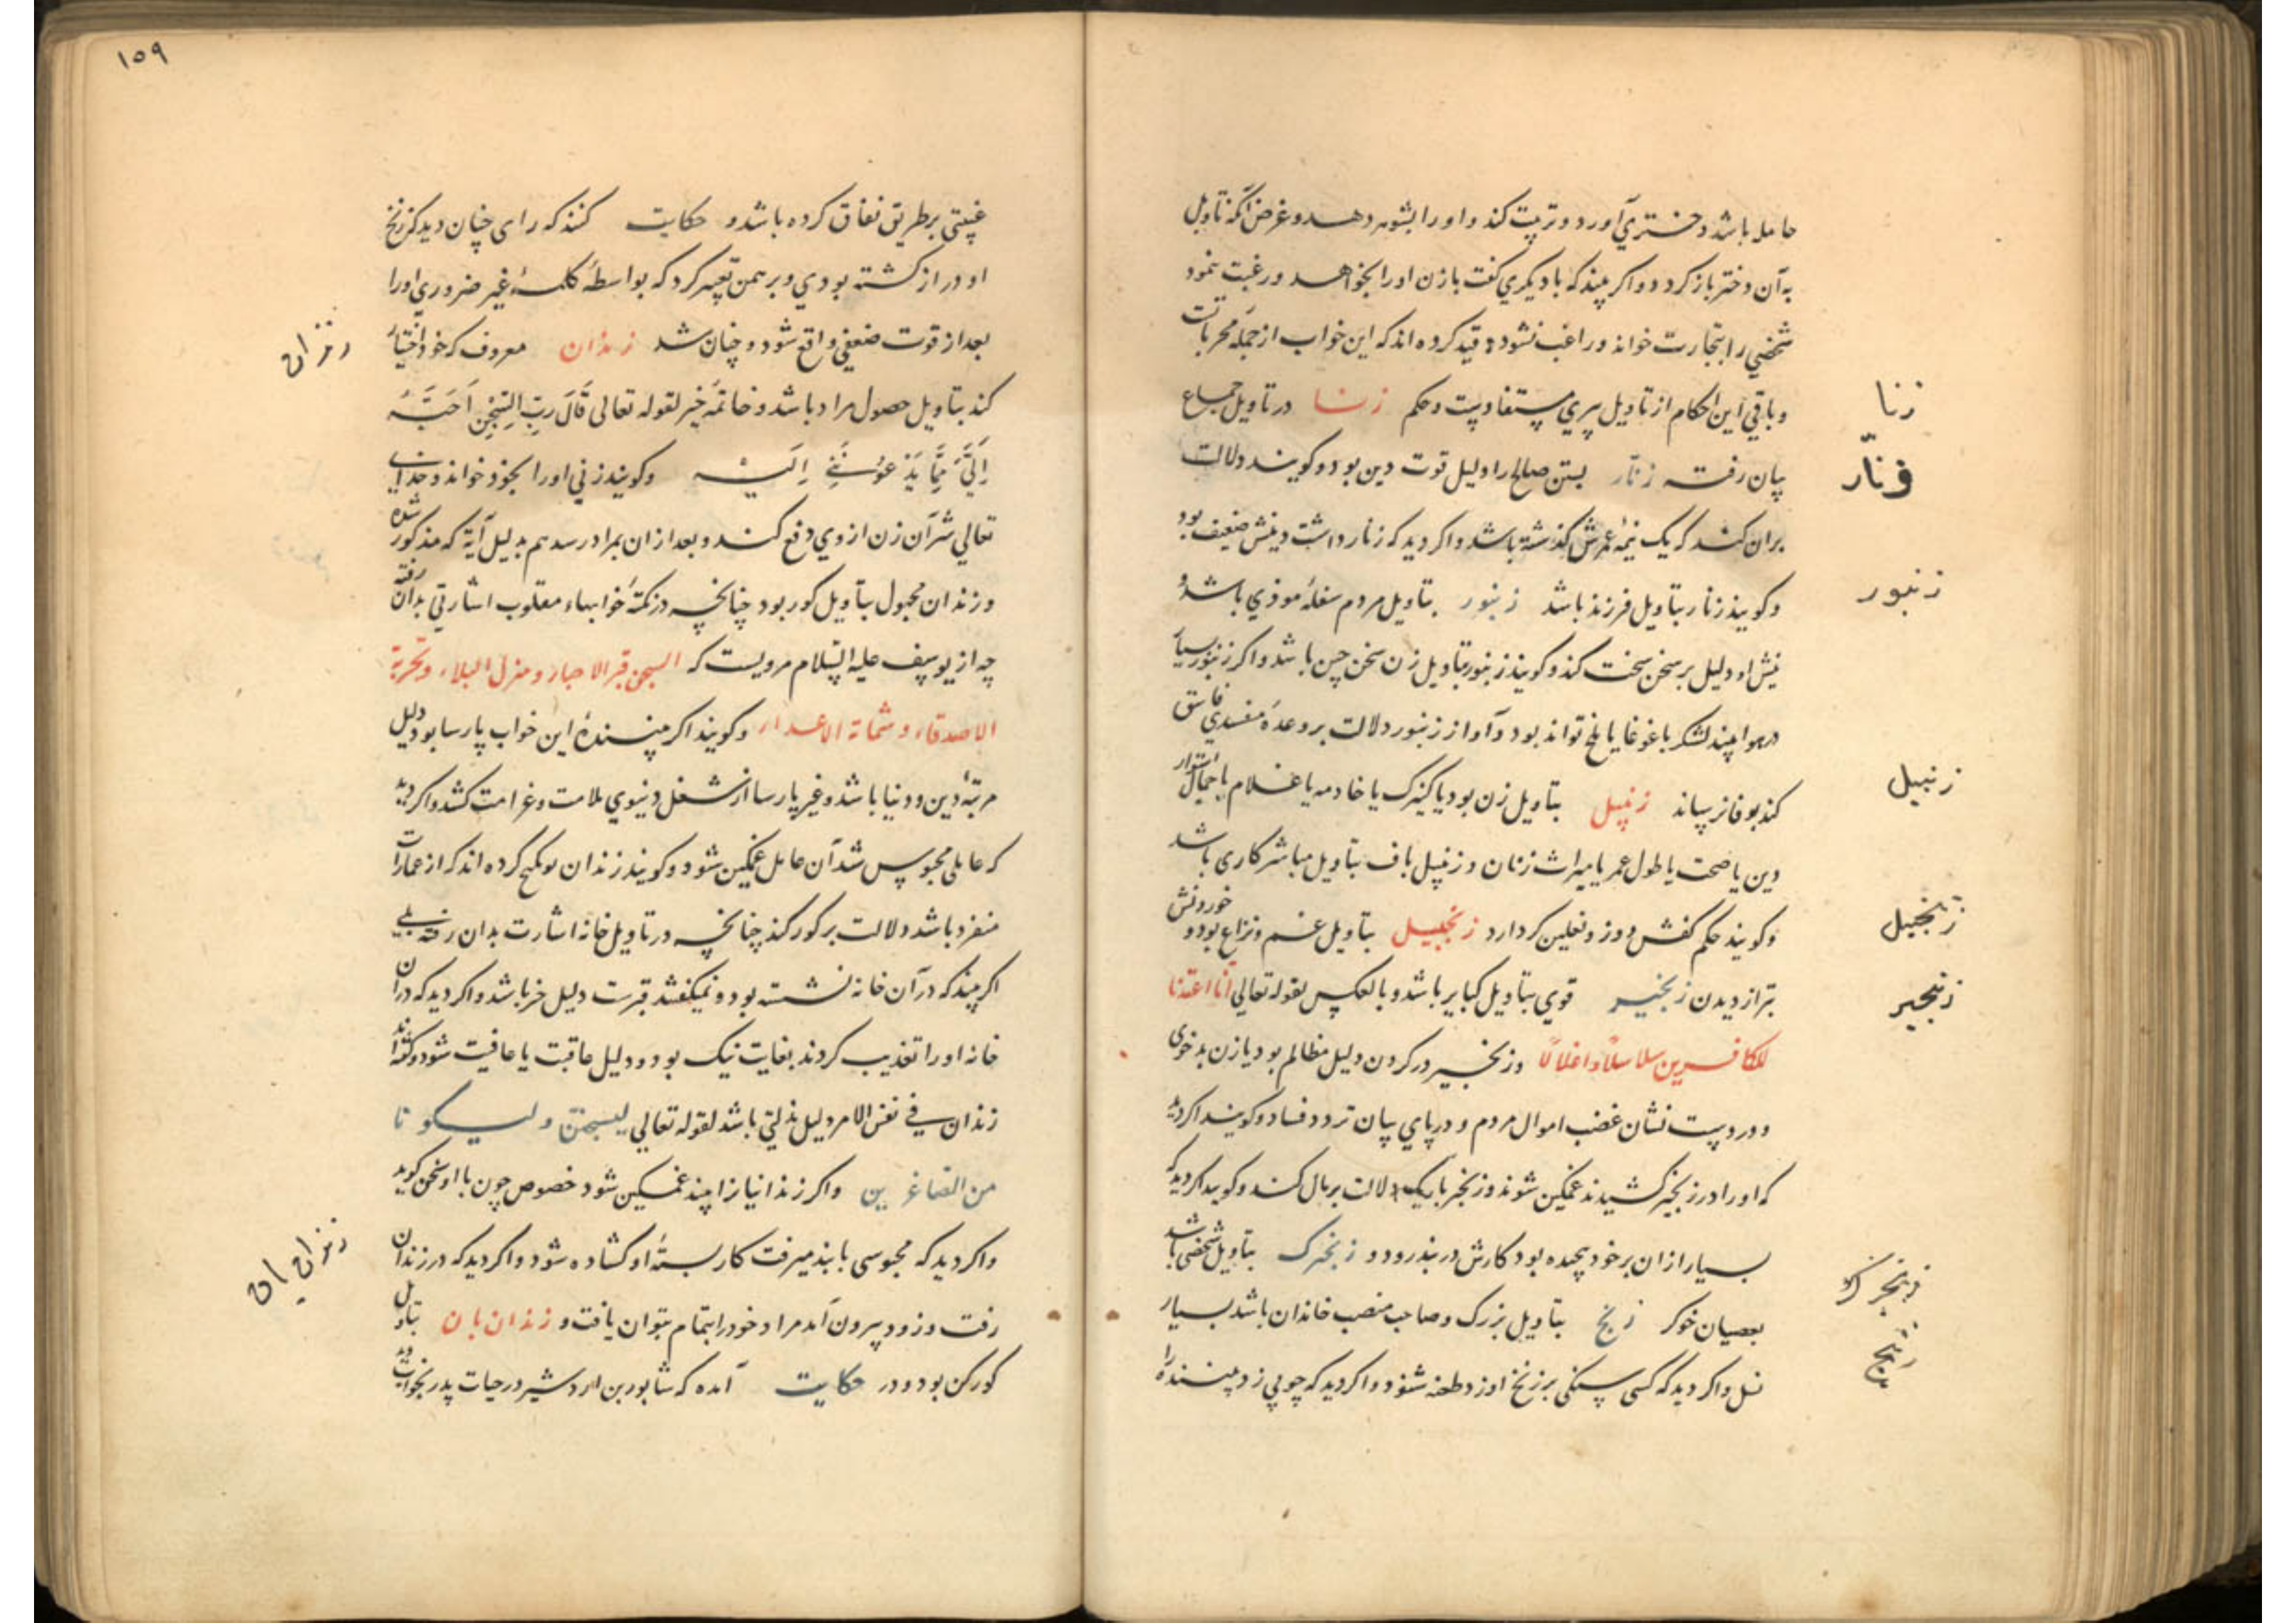 حامله باشد دختری آورد و تربیت کند و او را بشوهر دهد و غرض آنکه تاویل
به آن دختر باز کردد و اکر بیند که با دیکری کفت با زن او را بخواهد و رغبت نمود
شخصی را بتجارت خواند و راغب نشود و قید کرده اند که این خواب از جمله مجربات
و باقی این احکام از تاویل پری مستفاد و حکم زنا در تاویل جماع
زنا
بیان رفت زنّار بستن صالح را دلیل قوت دین بود و کویند دلالت
زنّار
بران کند که یک نیمه عمرش کذشته باشد و اکر دید که زنار داشت دینش ضعیف بود
و کویند زنار بتاویل فرزند باشد زنبور بتاویل مردم سفله موذی باشد و
زنبور
نیش او دلیل بر سخن سخت کند و کویند زنبور بتاویل زن سخن چین باشد و اکر زنبور بسیار
در هوا بیند لشکر با غوغا یا ملخ تواند بود و آواز زنبور دلالت بر وعده مفسدی فاسق
کند بوفا نرساند زنبیل بتاویل زن بود یا کنیزک یا خادمه یا غلام با جمال استوار
زنبیل
دین یا صحت یا طول عمر یا میراث زنان و زنبیل باف بتاویل مباشر کاری باشد
و کویند حکم کفش دوز و نعلین کر دارد زنجبیل بتاویل غم و نزاع بود و خوردنش
زنجبیل
بتر از دیدن زنجیر قوی بتاویل کبایر باشد و بالعکس لقوله تعالی انا اعتدنا
زنجیر
للکافرین سلاسلا و اغلالا و زنجیر در کردن دلیل مظالم بود یا زن بدخوی
و در دست نشان غصب اموال مردم و در پای بیان تردد فساد و کویند اکر دید
که او را در زنجیر کشیدند غمکین شوند و زنجیر باریک دلالت بر مال کند و کویند اکر دید که
بسیار از آن بر خود پیچیده بود کارش در بند رود و زنجرک بتاویل شخصی باشد
زنجرک
بعصیان خوکر زنخ بتاویل بزرک و صاحب منصب خاندان باشد بسیار
زنخ
نسل و اکر دید که کسی سنکی بر زنخ او زد طعنه شنود و اکر دید که چوبی زد بیننده را
۱۵۹
غیبتی بر طریق نفاق کرده باشد و حکایت کنند که رای چنان دید که زنخ
او دراز کشته بودی و برهمن تعبیر کرد که بواسطه کلمه غیر ضروری او را
بعد از قوت ضعفی واقع شود و چنان شد زندان معروف که خود اختیار
زندان
کند بتاویل حصول مراد باشد و خاتمه خیر لقوله تعالی قَالَ رَبِّ السِّجْنُ اَحَبُّ
اِلَیَّ مِمَّا یَدْعُونَنِی اِلَیْهِ و کویند زنی او را بخود خواند و خدای
تعالی شر آن زن از وی دفع کند و بعد از آن بمراد رسد هم بدلیل آیة که مذکور شده
و زندان مجهول بتاویل کور بود چنانچه در نکته خوابهاء مقلوب اشارتی بدان رفته
چه از یوسف علیه السلام مرویست که السجن قبر الاحیاء و منزل البلاء و تجربة
الاصدقاء و شماتة الاعداء و کویند اکر بیننده این خواب پارسا بود دلیل
مرتبه دین و دنیا باشد و غیر پارسا از شغل دنیوی ملامت و غرامت کشد و اکر دید
که عاملی محبوس شد آن عامل غمکین شود و کویند زندان کرده اند که از عمارات
منفرد باشد دلالت بر کور کند چنانچه در تاویل خانه اشارت بدان رفته بلی
اکر بیند که در آن خانه نشسته بود و نمیکفتند قبرست دلیل خیر باشد و اکر دید که در آن
خانه او را تعذیب کردند بغایت نیک بود و دلیل عاقبت با عافیت شود و کفته اند
زندان فی نفس الامر دلیل ذلتی باشد لقوله تعالی لیسجنن و لیکونا
من الصاغرین و اکر زندانیانرا بیند غمکین شود خصوص چون با او سخن کوید
و اکر دید که محبوسی با بند میرفت کار بسته او کشاده شود و اکر دید که در زندان
رفت و زود بیرون آمد مراد خود را بتمام بتوان یافت و زندان بان بتاویل
زندان بان
کورکن بود و در حکایت آمده که شاپور بن اردشیر در حیات پدر بخواب دید